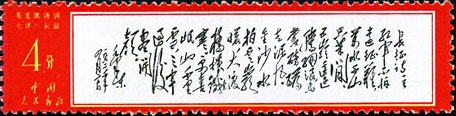 毛主席诗词
七律·长征
4分
中国
人民邮政
长征诗一首
红军不怕
远征难
万水千山
只等闲
五岭逶迤
腾细浪
乌蒙
磅礴
走泥丸
金沙水
拍云崖
暖大渡
桥横铁索
寒更喜
岷山千里
雪三军
过后
尽开
颜
毛泽东